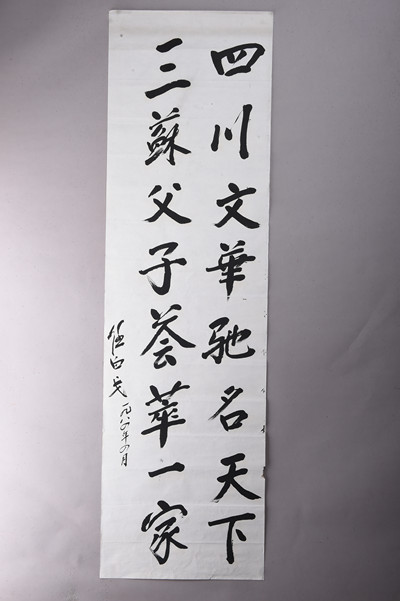 四川文華馳名天下
三蘇父子荟萃一家
任白戈
一九八〇年〇月